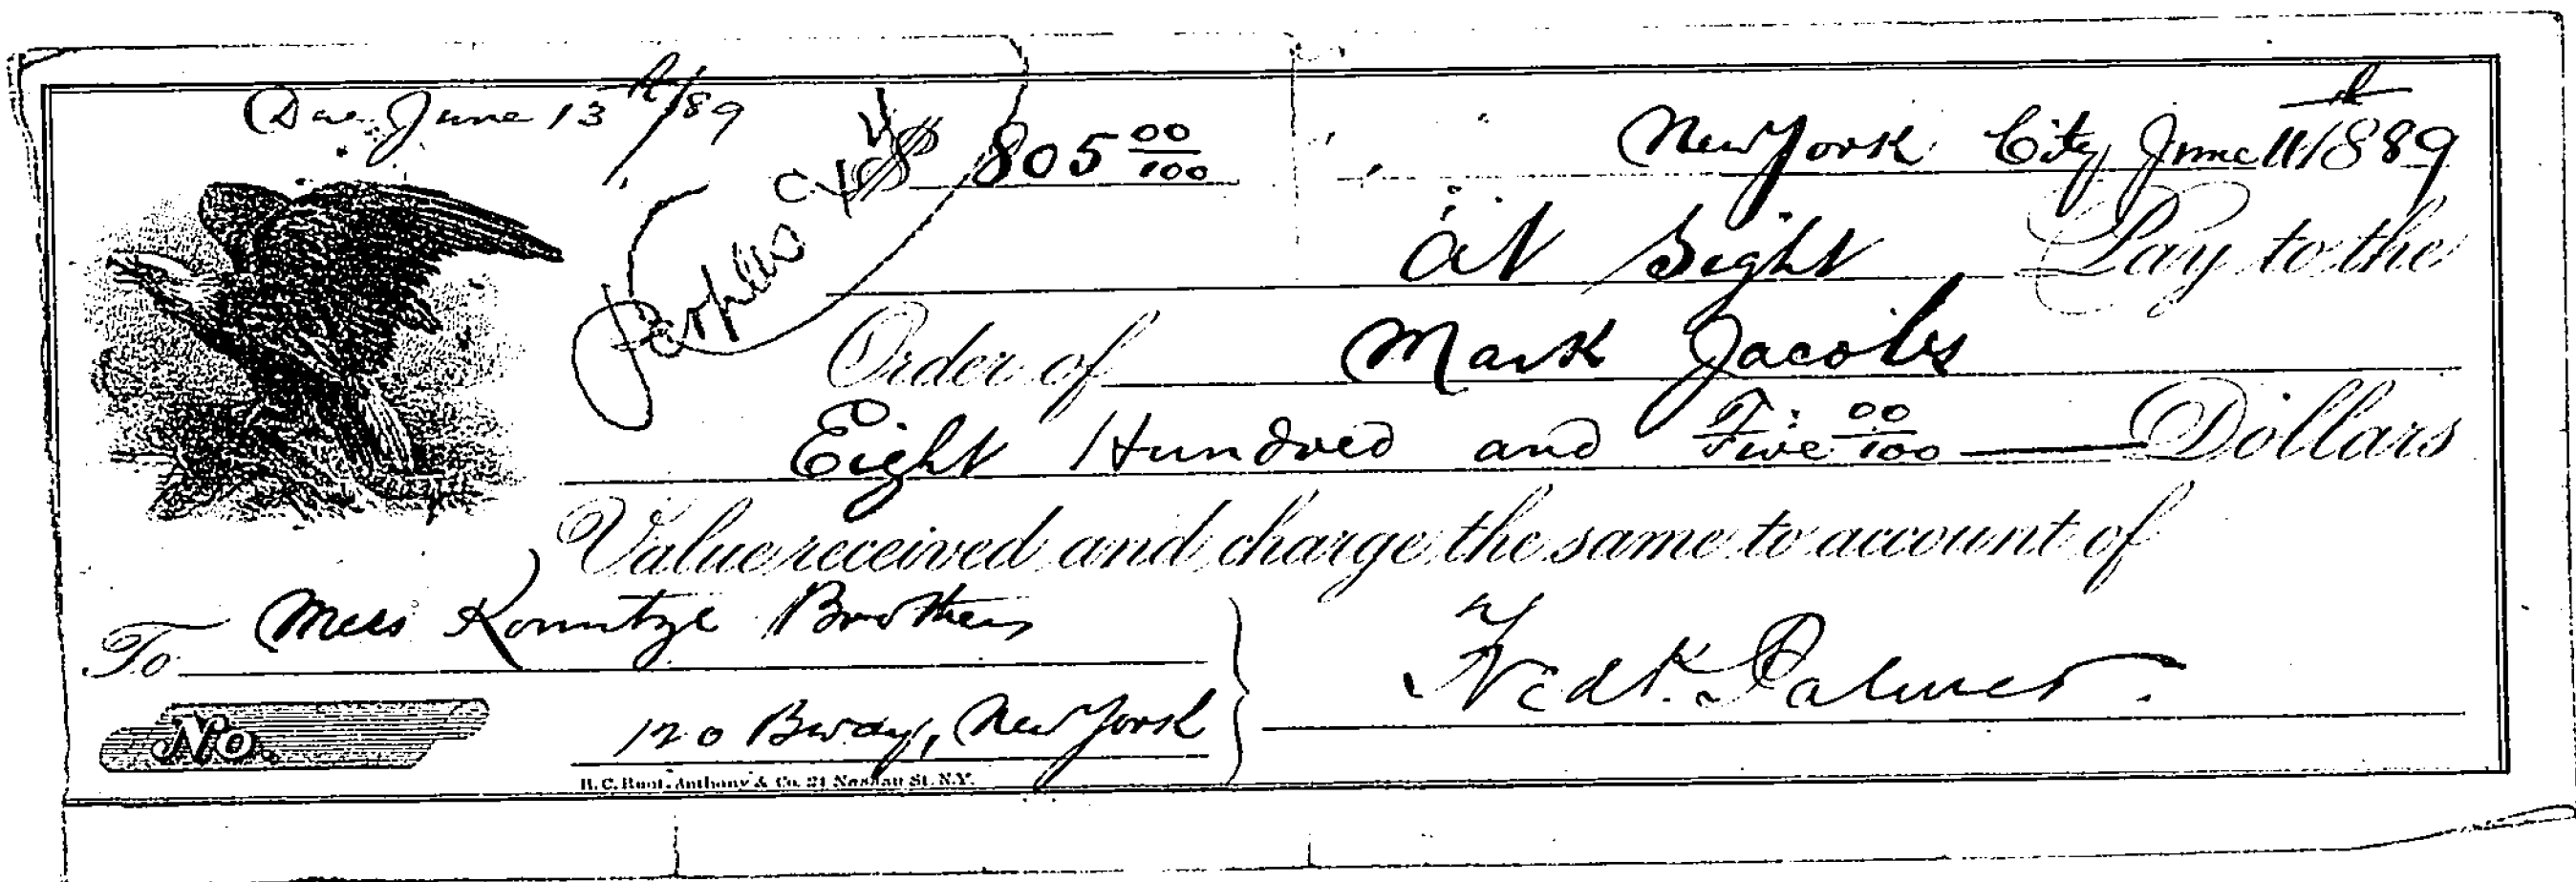 Due June 13th/89
$ 805 00/100
New York City June 11th 1889
At Sight Pay to the
Order of Mark Jacobs
Eight Hundred and Five 00/100 Dollars
Value received and charge the same to account of
To Mess Kountze Brothers
120 Bwdy, New York
Palmer.
No.
H. C. Root, Anthony & Co. 21 Nassau St. N.Y.